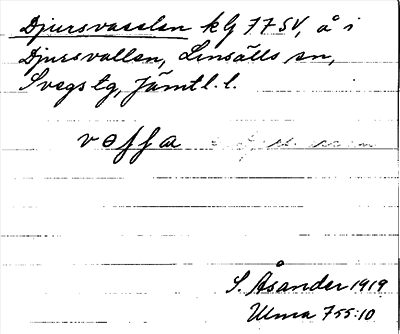 Djursvasslan kg 77 SV, å i
Djursvallen, Linsälls sn,
Svegs tg, Jämtl. l.
vəffa
S. Åsander 1919
Ulma 755:10